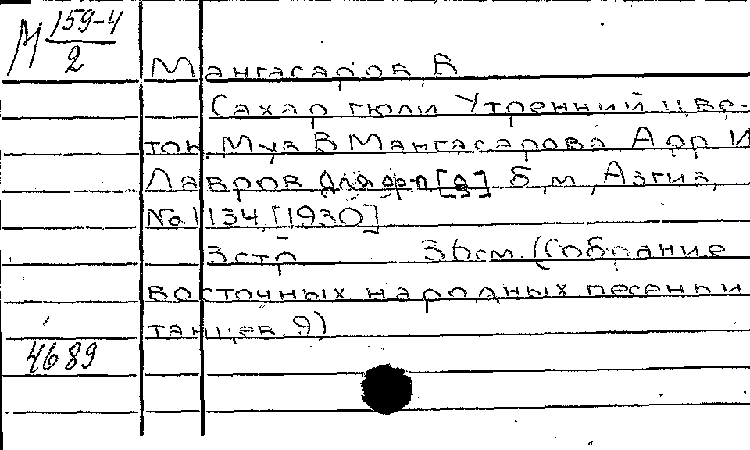 М 159-4
2
Мангасаров В
Сахар гюли Утренний цве-
ток. Муз В Мангасарова Арр И
Лавров Для фп [Б] Б, м, Азгиз,
№ 1134, [1930]
3 стр 36 см. (Собрание
восточных народных песен и
танцев 9)
4689